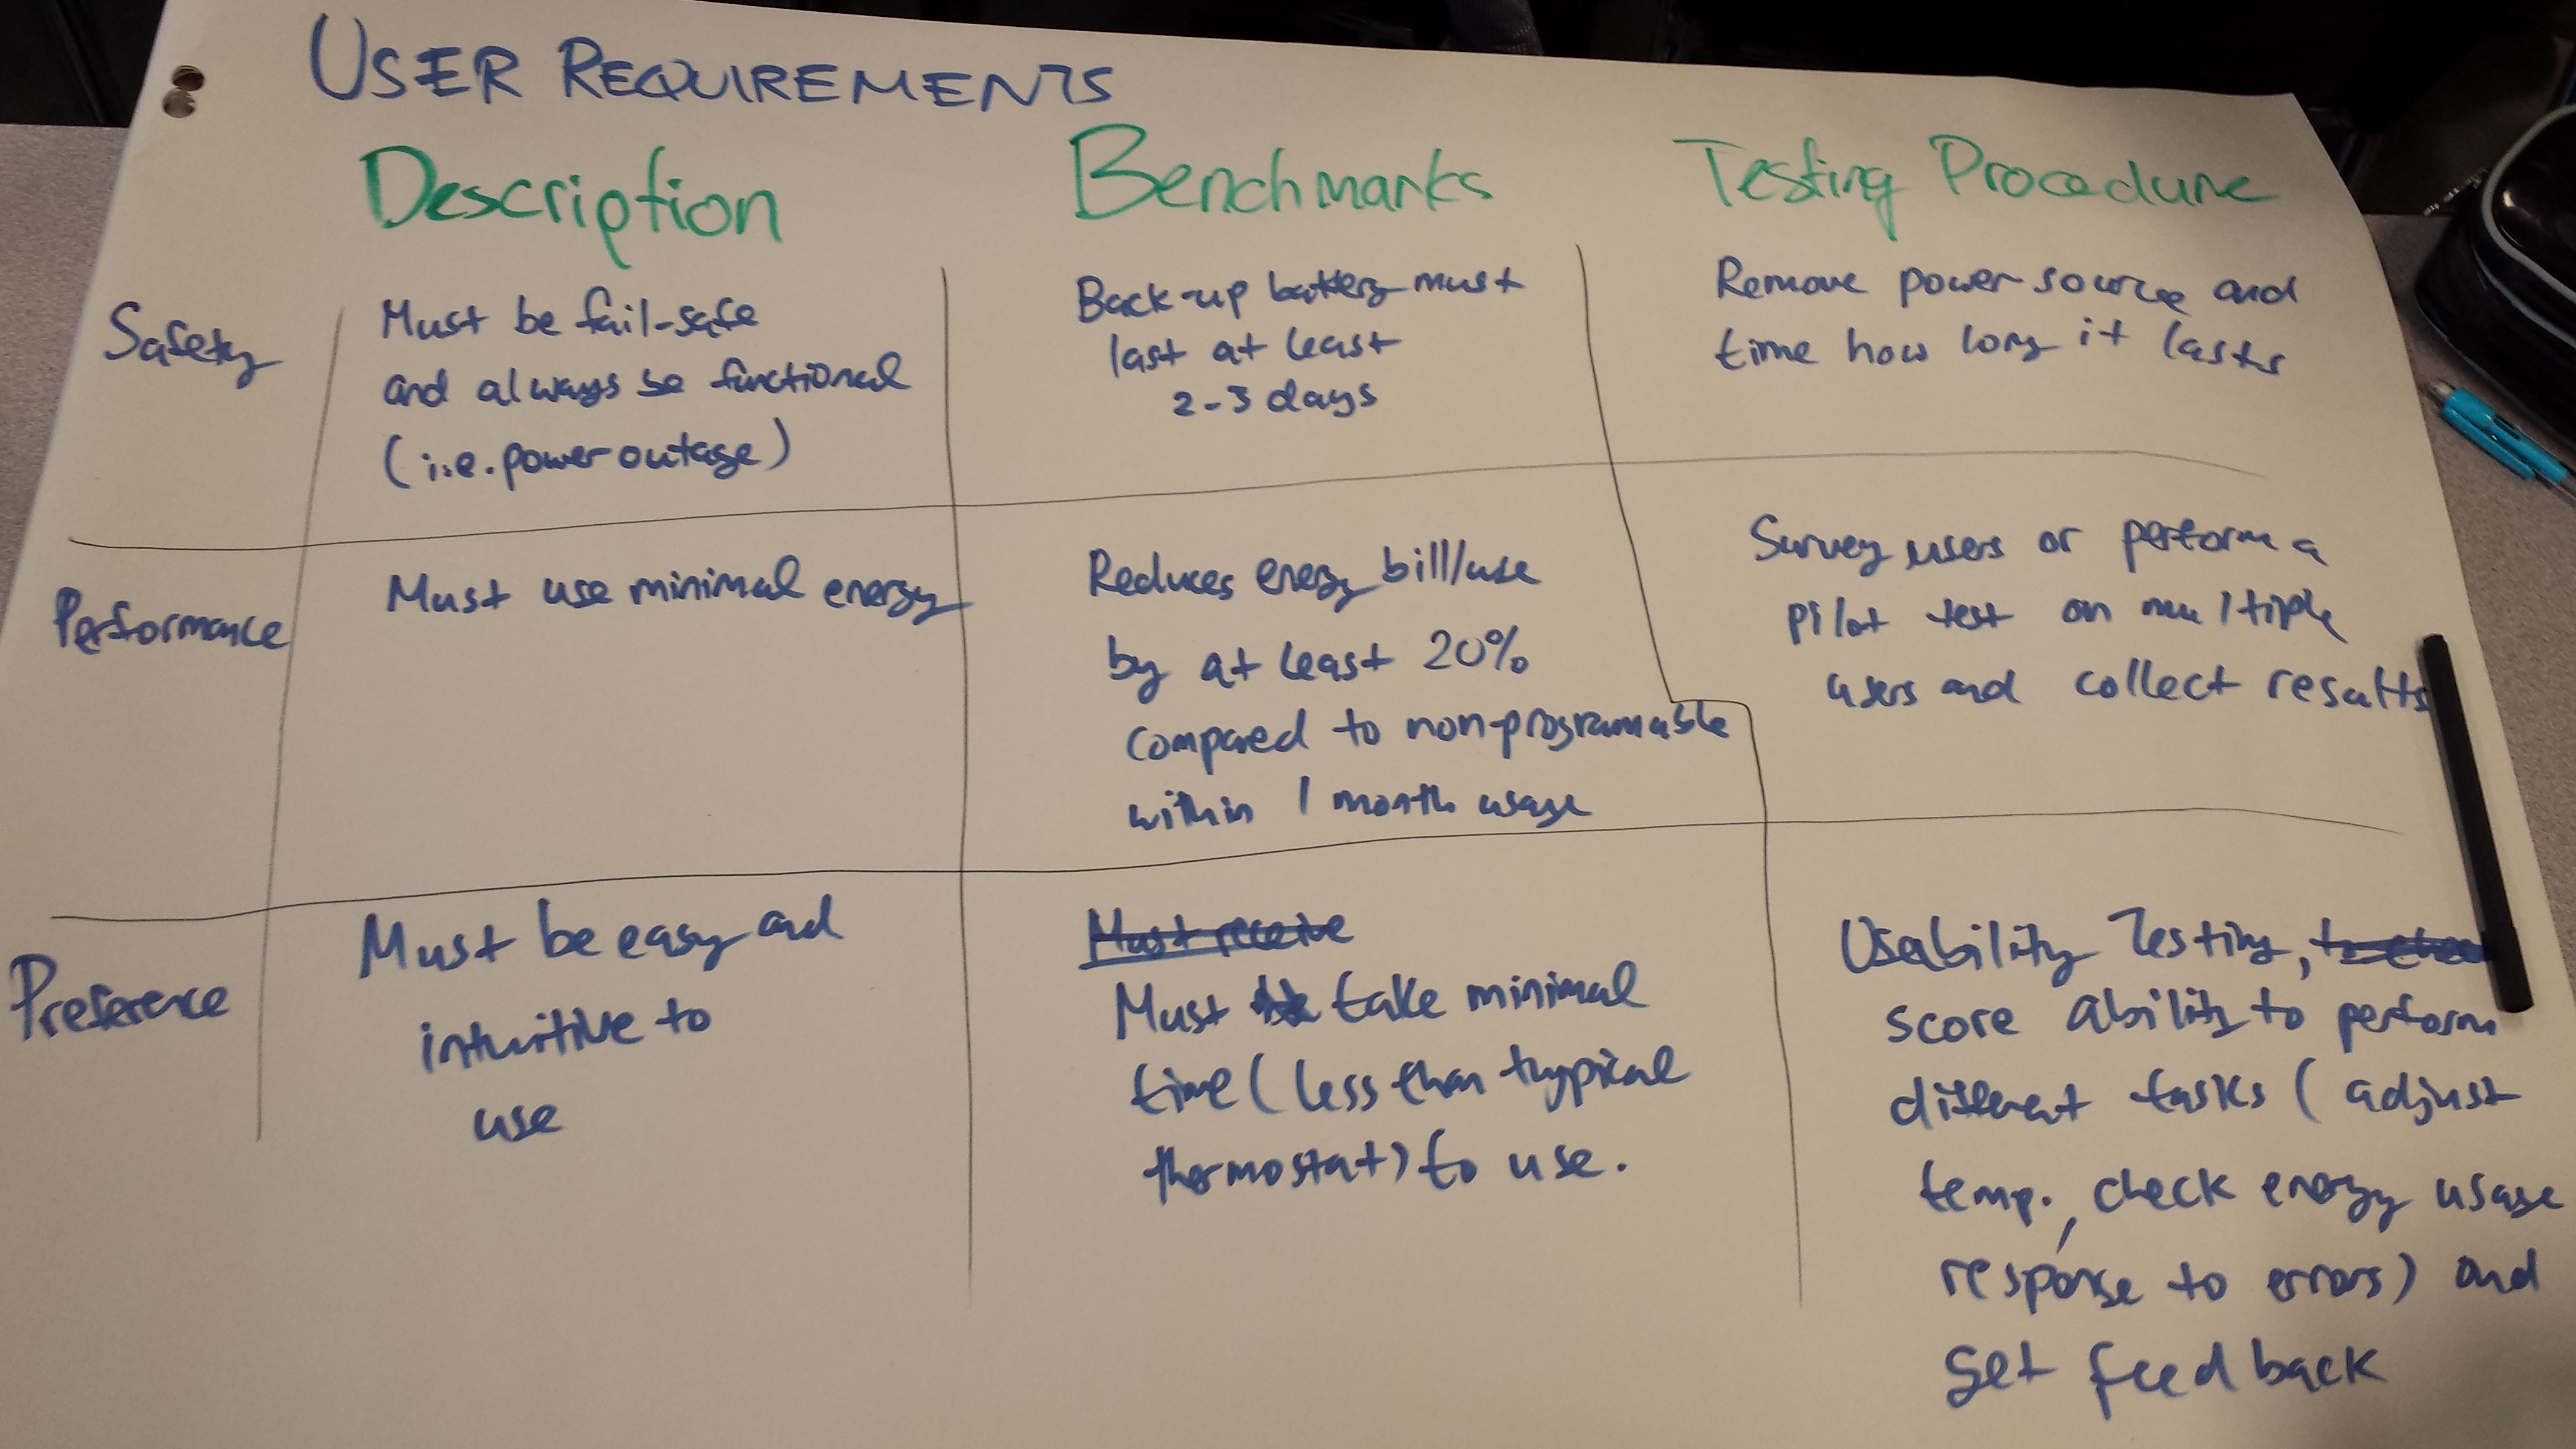 USER REQUIREMENTS
Description
Benchmarks
Testing Procedure
Safety
Must be fail-safe
and always be functional
(i.e. power outage)
Back-up battery must
last at least
2-3 days
Remove power source and
time how long it lasts
Performance
Must use minimal energy
Reduces energy bill/use
by at least 20%
compared to non-programable
within 1 month usage
Survey users or perform a
pilot test on multiple
users and collect results
Preference
Must be easy and
intuitive to
use
Must receive
Must take minimal
time (less than thypical
thermostat) to use.
Usability Testing,
score ability to perform
different tasks (adjust
temp., check energy usage
response to errors) and
get feedback